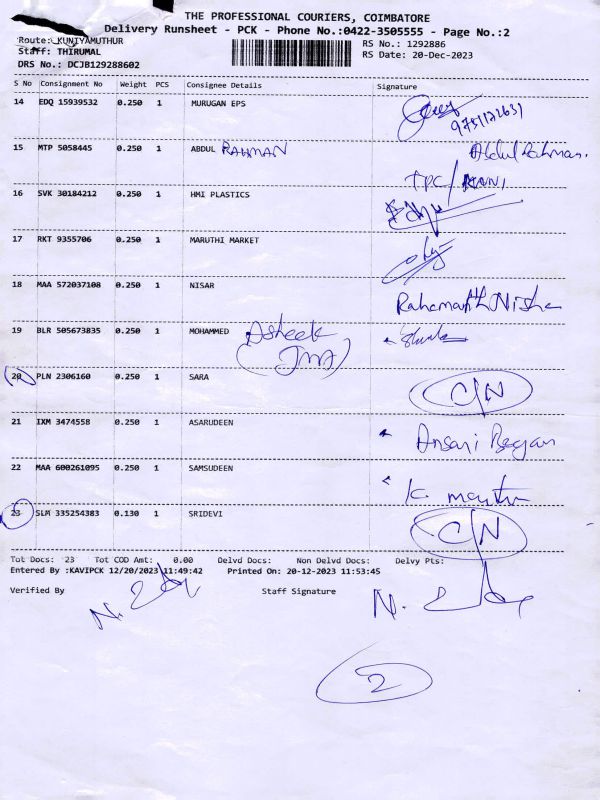 THE PROFESSIONAL COURIERS, COIMBATORE
Delivery Runsheet - PCK - Phone No.:0422-3505555 - Page No.:2
Route: KUNIYAMUTHUR
RS No.: 1292886
Staff: THIRUMAL
RS Date: 20-Dec-2023
DRS No.: DCJB129288602
S No Consignment No Weight PCS Consignee Details Signature
14 EDQ 15939532 0.250 1 MURUGAN EPS
15 MTP 5058445 0.250 1 ABDUL RAHMAN Abdul Rahman.
TPC/MANI
16 SVK 30184212 0.250 1 HMI PLASTICS
17 RKT 9355706 0.250 1 MARUTHI MARKET
18 MAA 572037108 0.250 1 NISAR
Rahamath Nisha
19 BLR 505673835 0.250 1 MOHAMMED Asheek
20 PLN 2306160 0.250 1 SARA
C/N
21 IXM 3474558 0.250 1 ASARUDEEN
Ansari Begam
22 MAA 600261095 0.250 1 SAMSUDEEN
23 SLM 335254383 0.130 1 SRIDEVI
C/N
Tot Docs: 23 Tot COD Amt: 0.00 Delvd Docs: Non Delvd Docs: Delvy Pts:
Entered By :KAVIPCK 12/20/2023 11:49:42 Printed On: 20-12-2023 11:53:45
Verified By Staff Signature
2